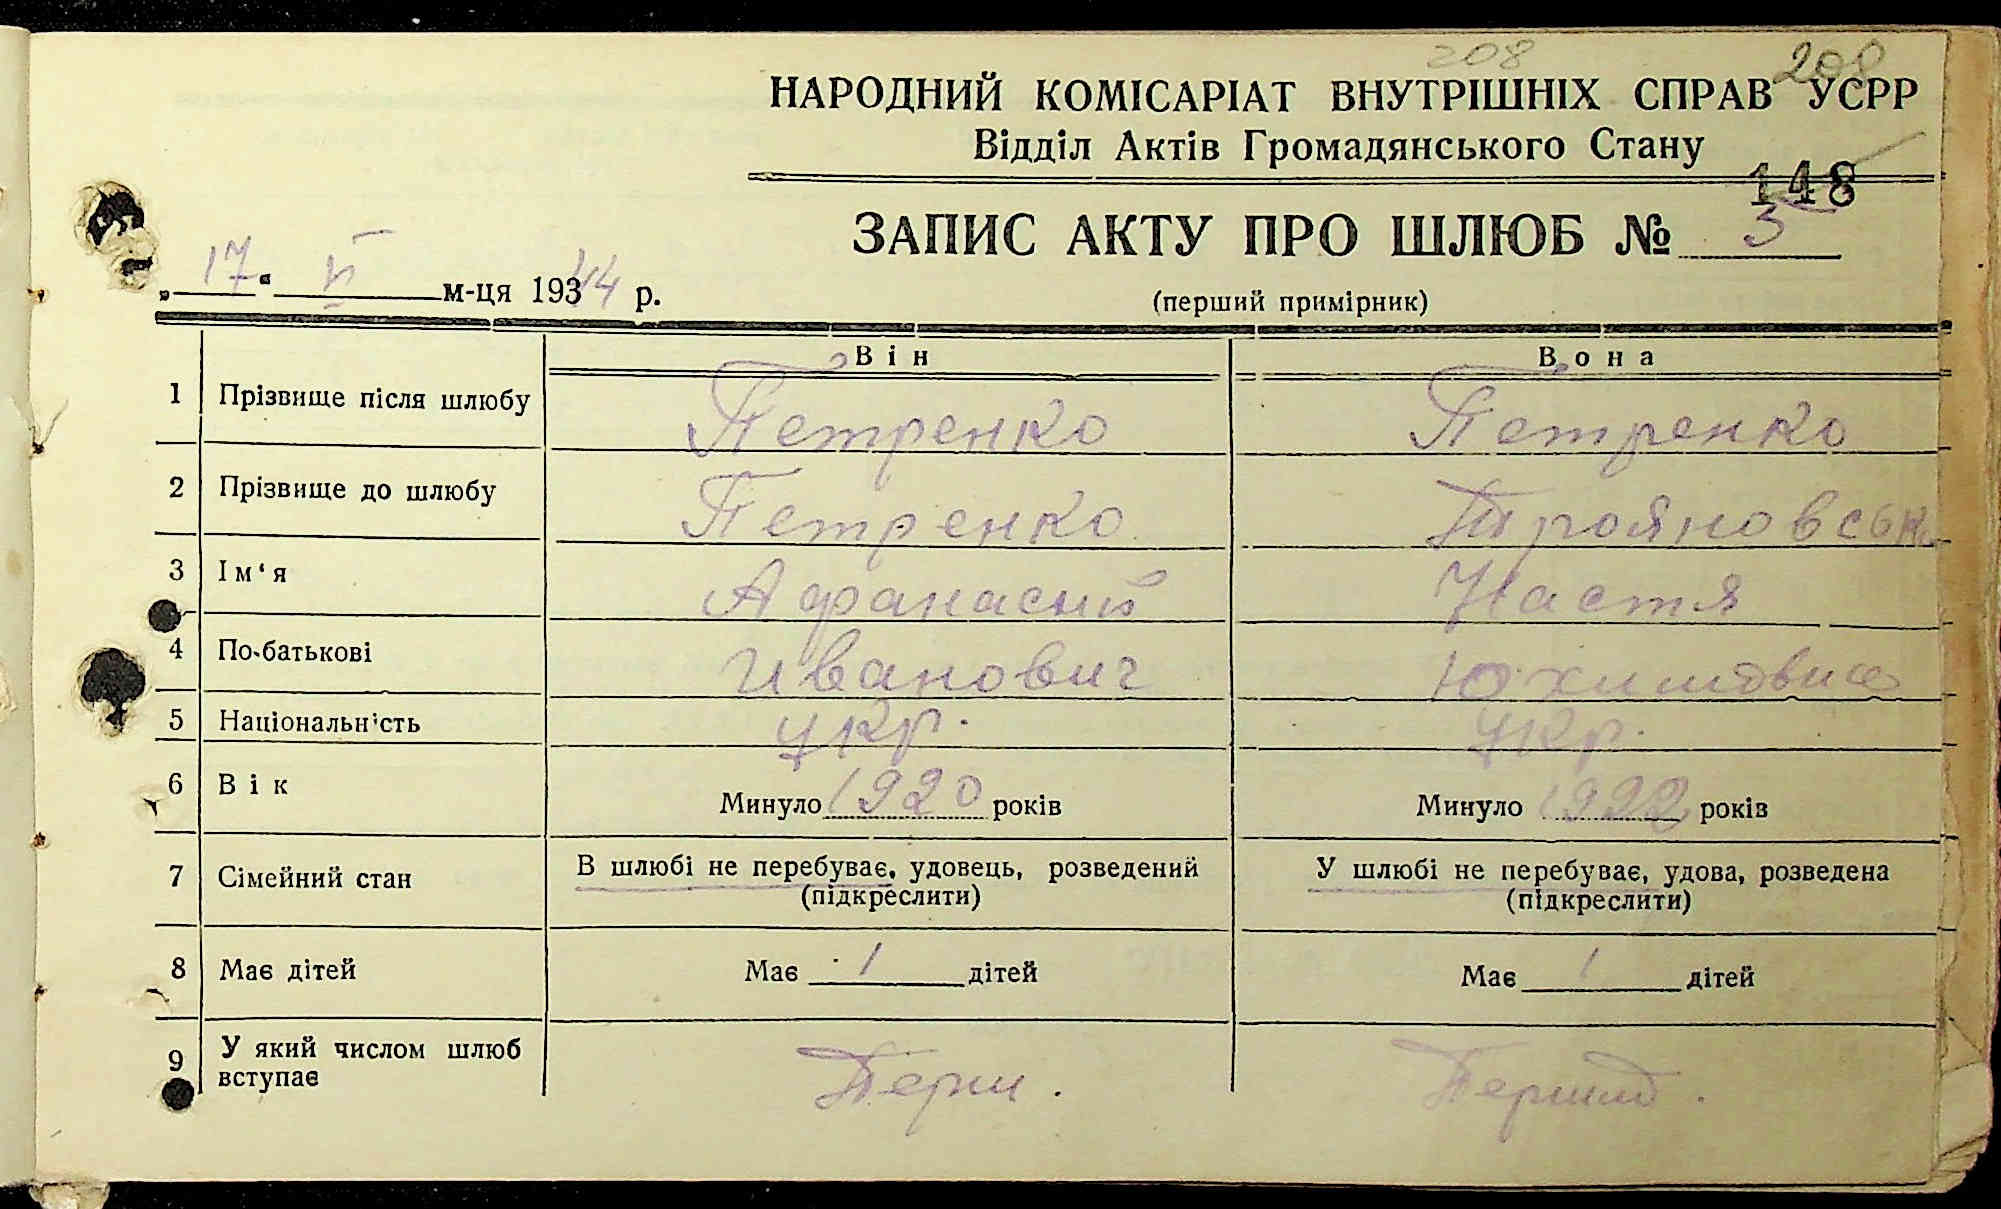 208 208
НАРОДНИЙ КОМІСАРІАТ ВНУТРІШНІХ СПРАВ УСРР
Відділ Актів Громадянського Стану
148
ЗАПИС АКТУ ПРО ШЛЮБ № 5
„17“ VI м-ця 19344 р.
(перший примірник)
Він Вона
1 Прізвище після шлюбу Петренко Петренко
2 Прізвище до шлюбу Петренко Трояновська
3 Ім‘я Афанасий Настя
4 По-батькові Иванович
5 Національність укр. укр.
6 Вік Минуло 1920 років Минуло 1922 років
7 Сімейний стан В шлюбі не перебуває, удовець, розведений У шлюбі не перебуває, удова, розведена
(підкреслити) (підкреслити)
8 Має дітей Має 1 дітей Має 1 дітей
9 У який числом шлюб вступає Перш.